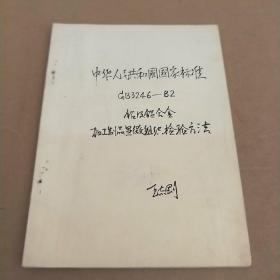 中华人民共和国国家标准
GB3246-82
铝及铝合金
加工制品显微组织检验方法